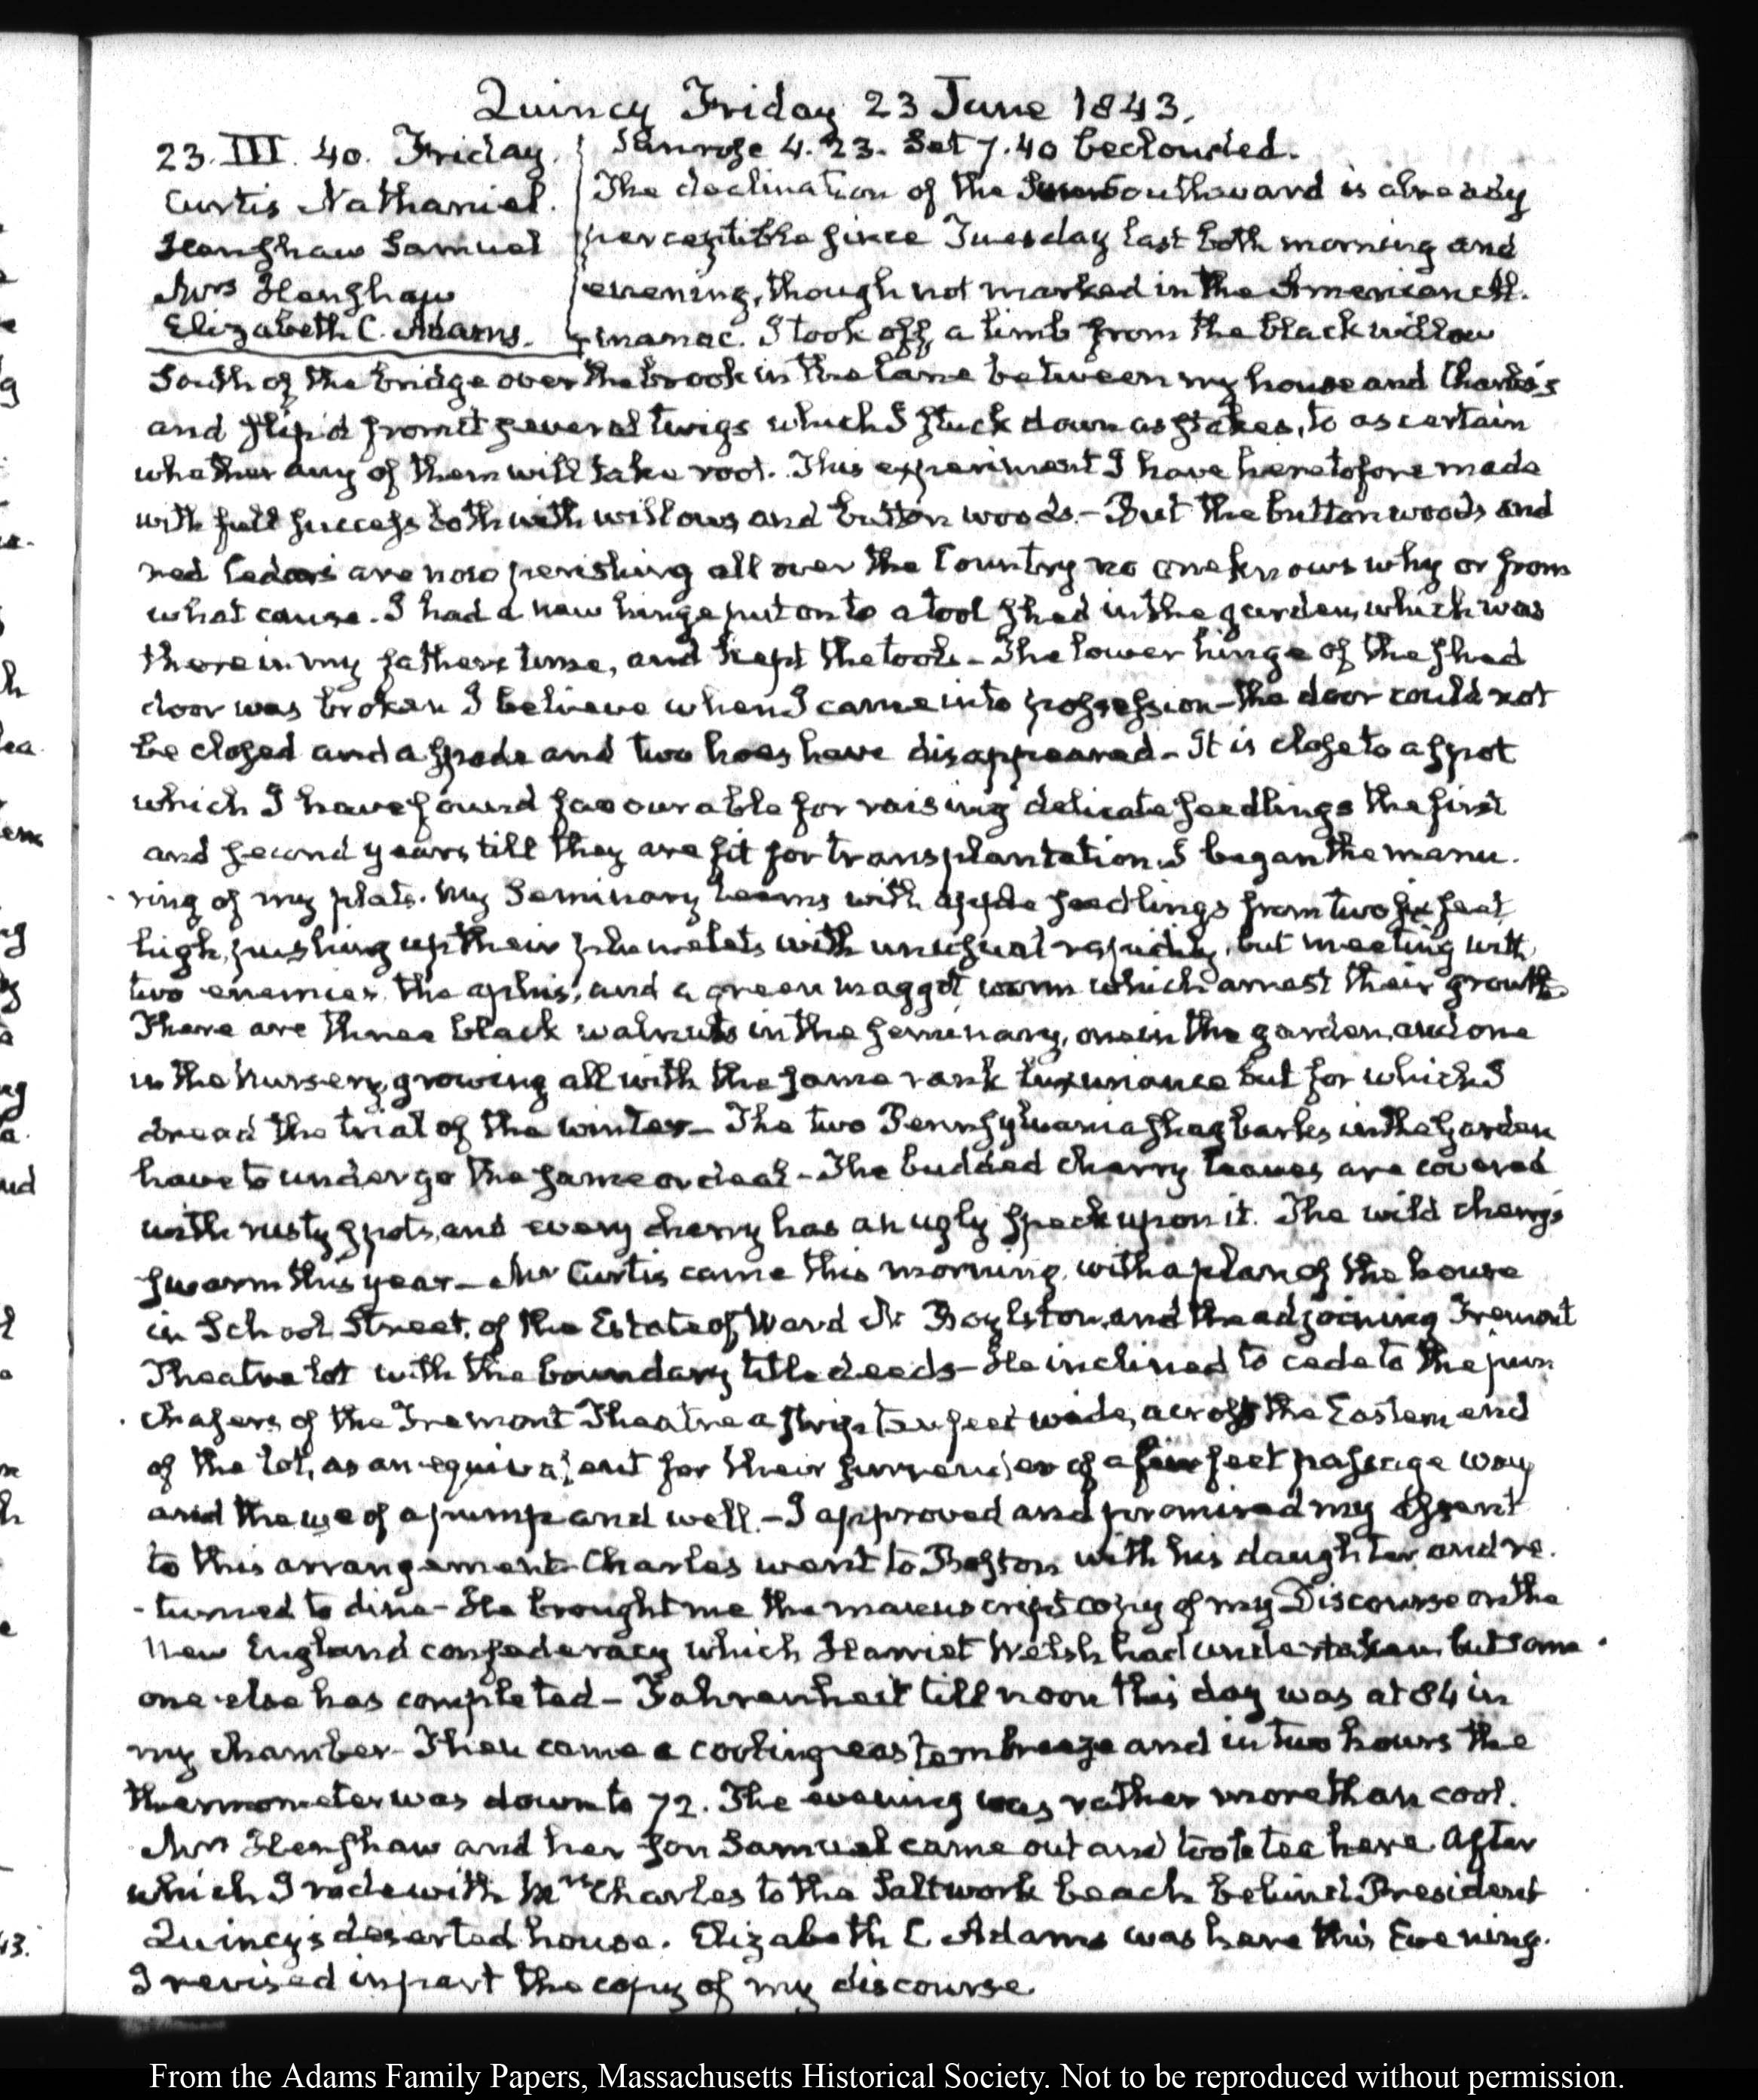 Quincy Friday 23 June 1843.
23. III. 40. Friday.
Curtis Nathaniel.
Henshaw Samuel
Mrs Henshaw
Elizabeth C. Adams.
Sunrose 4. 23. Set 7. 40 beclouded.
The declination of the Sun Southward is already
perceptible since Tuesday last both morning and
evening, though not marked in the American Al-
manac. I took off a limb from the black willow
South of the bridge over the brook in the lane between my house and Charles's
and slip'd from it several twigs which I stuck down as stakes, to ascertain
whether any of them will take root. This experiment I have heretofore made
with full success both with willows and button woods.- But the button woods and
red Cedars are now perishing all over the Country no one knows why or from
what cause. I had a new hinge put on to a tool shed in the garden, which was
there in my father's time, and kept the tools- The lower hinge of the shed
door was broken I believe when I came into possession- the door could not
be closed and a spade and two hoes have disappeared- It is close to a spot
which I have found favourable for raising delicate seedlings the first
and second years till they are fit for transplantation. I began the manu-
ring of my plats. My Seminary teems with apple seedlings from two six feet
high, pushing up their plumelets with unusual rapidity, but meeting with
two enemies, the aphis, and a green maggot worm which arrest their growth
There are three black walnuts in the seminary, one in the garden, and one
in the Nursery, growing all with the same rank luxuriance but for which I
dread the trial of the winter- The two Pennsylvania shagbarks in the Garden
have to undergo the same ordeal- The budded cherry leaves are covered
with rusty spots, and every cherry has an ugly speck upon it. The wild cherries
swarm this year- Mr Curtis came this morning, with a plan of the house
in School Street, of the Estate of Ward N. Boylston, and the adjoining Tremont
Theatre lot with the boundary title deeds- He inclined to cede to the pur-
chasers of the Tremont Theatre a strip ten feet wide, across the Eastern end
of the lot, as an equivalent for their surrender of a feet passage way
and the use of a pump and well.- I approved and promised my assent
to this arrangement- Charles went to Boston with his daughter and re-
-turned to dine- He brought me the manuscript copy of my Discourse on the
New England confederacy which Harriet Welsh had undertaken but some
one else has completed- Fahrenheit till noon this day was at 84 in
my chamber- Then came a cooling eastern breeze and in two hours the
thermometer was down to 72. The evening was rather more than cool.
Mrs Henshaw and her son Samuel came out and took tea here. After
which I rode with Mrs Charles to the Saltwork beach behind President
Quincy's deserted house. Elizabeth C. Adams was here this Evening.
I revised in part the copy of my discourse
From the Adams Family Papers, Massachusetts Historical Society. Not to be reproduced without permission.